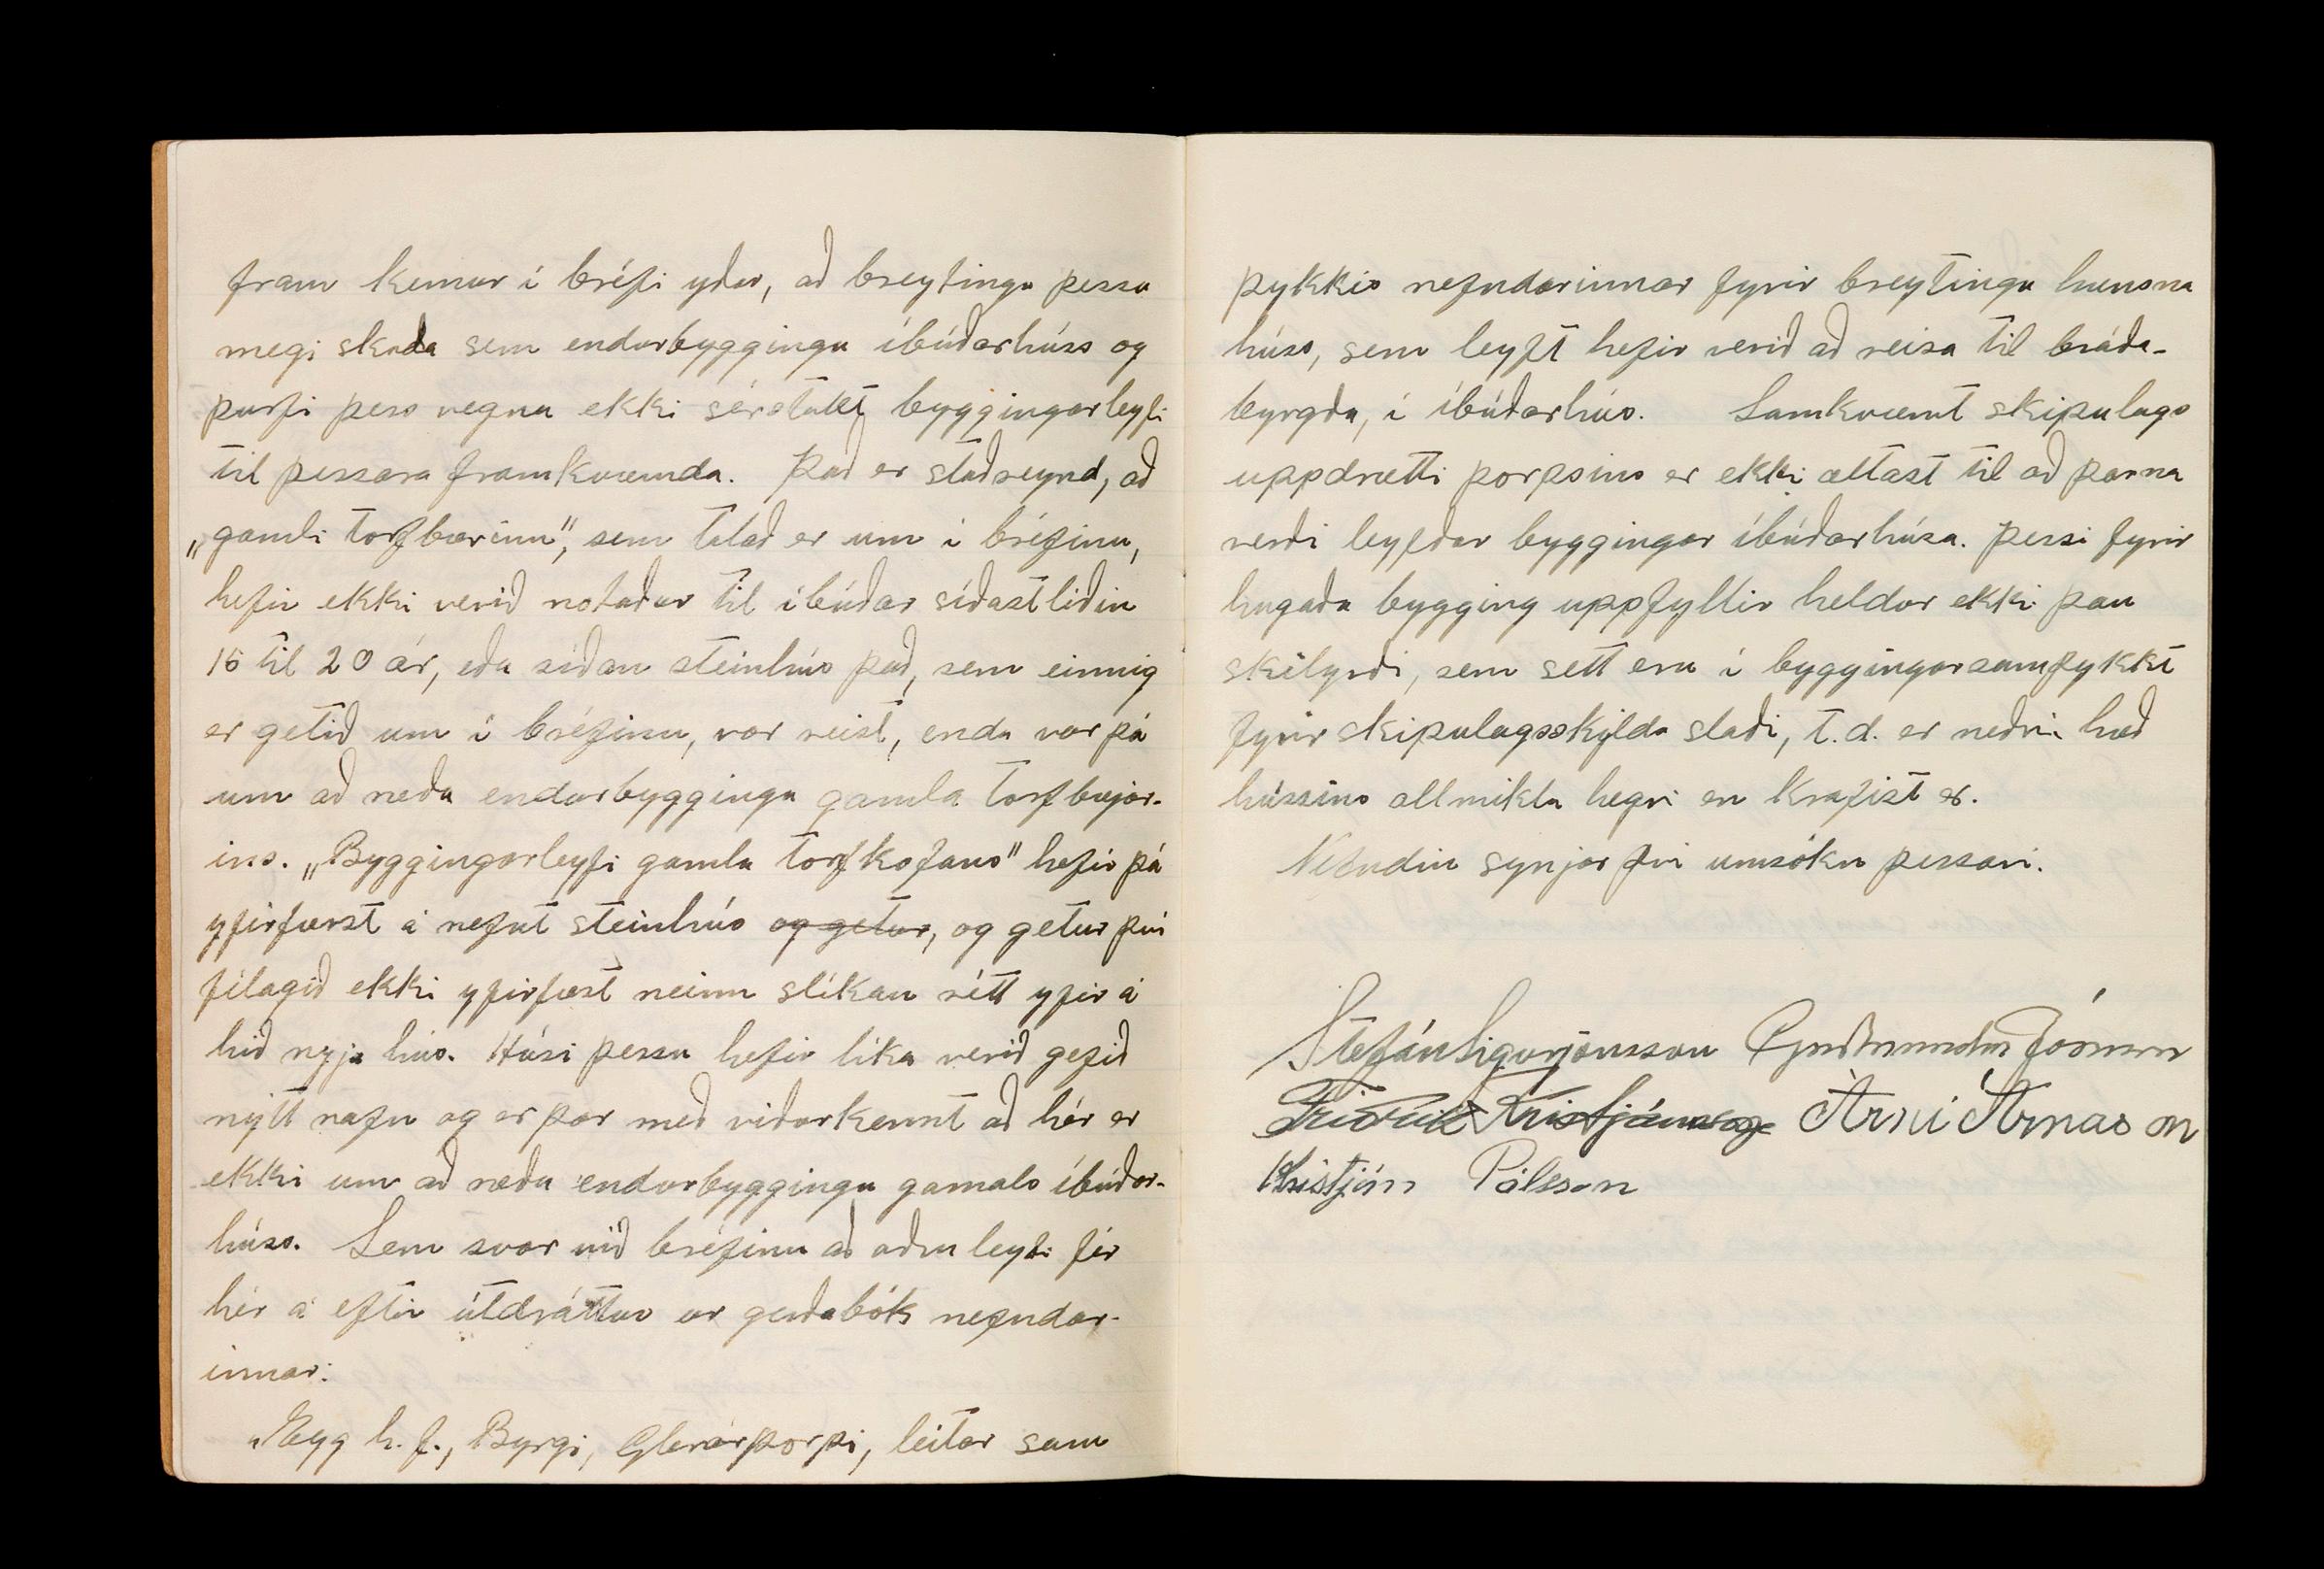 fram kemur í bréfi yðar, að breytingu þessa
megi skoða sem endurbyggingu íbúðarhúss og
þurfi þess vegna ekki sérstakt byggingarleyfi
til þessara framkvæmda. Það er staðreynd, að
„gamli torfbærinn", sem talað er um í bréfinu,
hefir ekki verið notaður til íbúðar síðastliðin
15 til 20 ár, eða síðan steinhús það, sem einnig
er getið um í bréfinu, var reist, enda var þá
um að ræða endurbyggingu gamla torfbæjar-
ins. „Byggingarleyfi gamla torfkofans" hefir þá
yfirfærst á nefnt steinhús og getur, og getur því
félagið ekki yfirfært neinn slíkan rétt yfir á
hið nýja hús. Húsi þessu hefir líka verið gefið
nýtt nafn og er þar með viðurkennt að hér er
ekki um að ræða endurbyggingu gamals íbúðar-
húss. Sem svar við bréfinu að öðru leyti fer
hér á eftir útdráttur úr gerðabók nefndar-
innar:
„Hegg h.f., Byrgi, Glerárþorpi, leitar sam
þykkis nefndarinnar fyrir breytingu hænsna
húss, sem leyft hefir verið að reisa til bráða-
byrgða, í íbúðarhús. Samkvæmt skipulags
uppdrætti þorpsins er ekki ætlast til að þarna
verði leyfðar byggingar íbúðarhúsa. Þessi fyrir
hugaða bygging uppfyllir heldur ekki þau
skilyrði, sem sett eru í byggingarsamþykkt
fyrir skipulagsskylda staði, t.d. er neðri hæð
hússins allmikla lægri en krafist er.
Nefndin synjar því umsókn þessari.
Stefán Sigurjónsson Guðmundur Jónsson
Friðrik Kristjánsson Árni Árnason
Kristján Pálsson